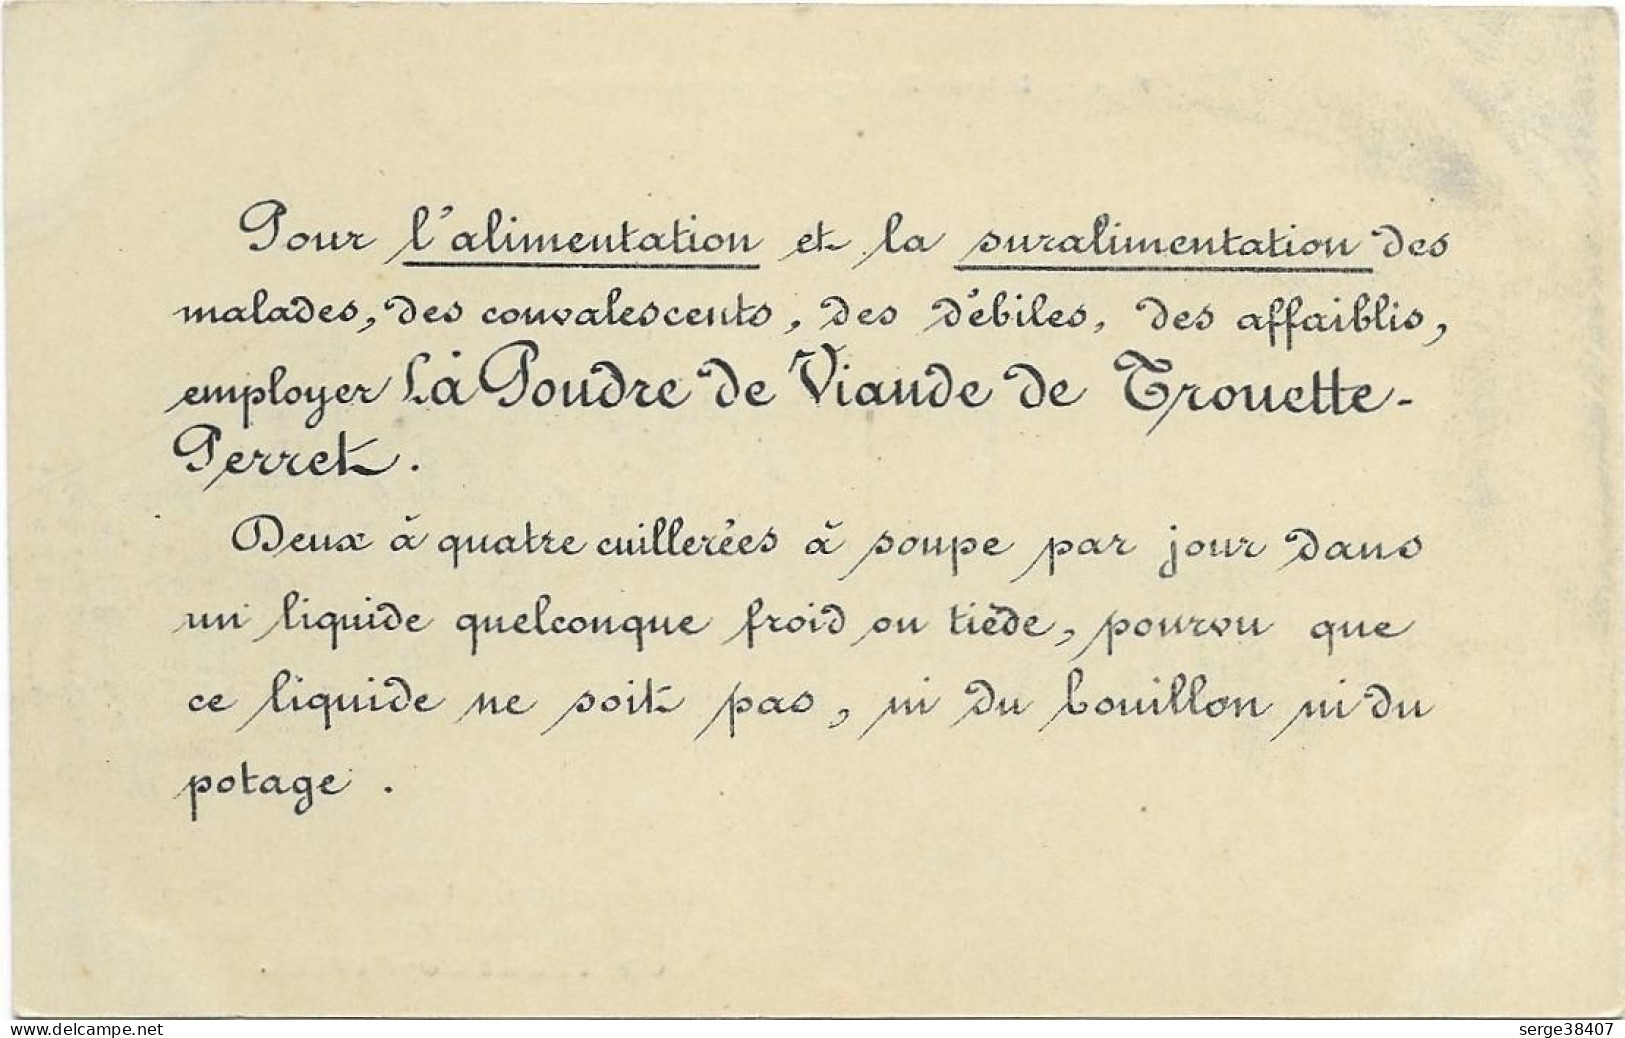 Pour l'alimentation et la suralimentation des
malades, des convalescents, des débiles, des affaiblis,
employer La Poudre de Viande de Trouette-
Perret.
Deux à quatre cuillerées à soupe par jour dans
un liquide quelconque froid ou tiède, pourvu que
ce liquide ne soit pas, ni du bouillon ni du
potage.
www.delcampe.net
serge38407